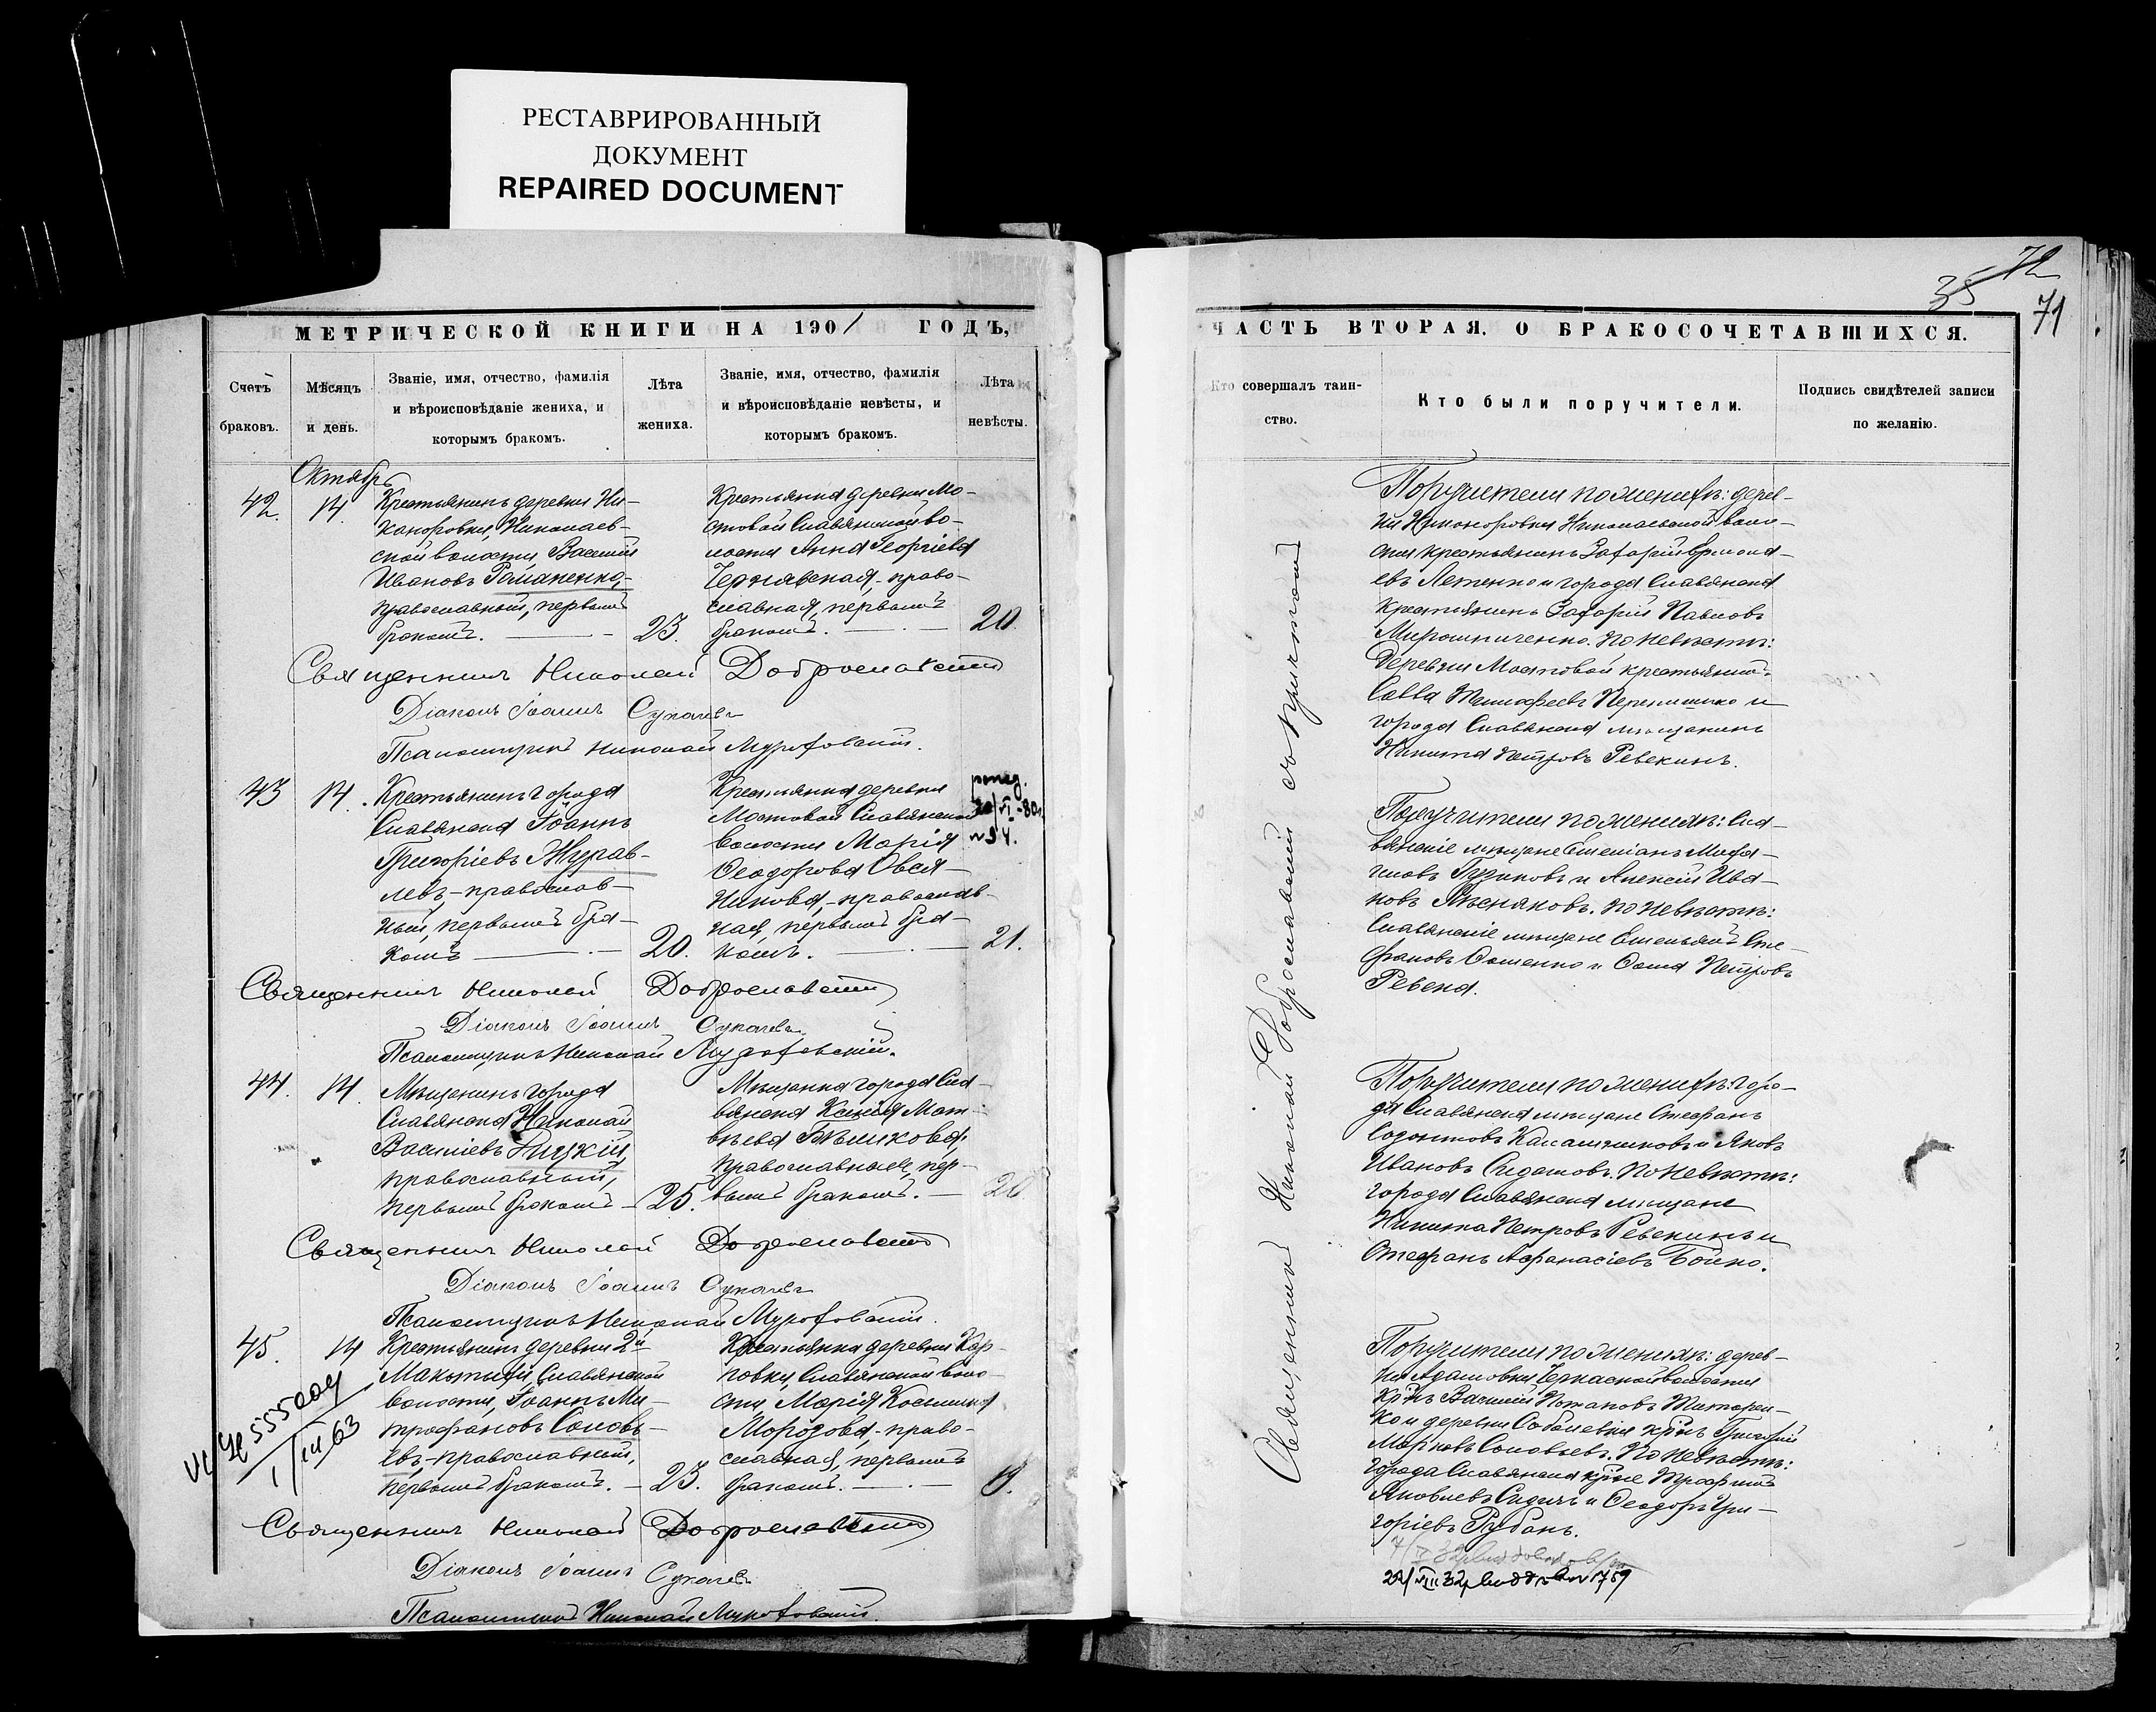 РЕСТАВРИРОВАННЫЙ
ДОКУМЕНТ
REPAIRED DOCUMENT
МЕТРИЧЕСКОЙ КНИГИ НА 1901 ГОДЪ,
Счетъ
браковъ.
Мѣсяцъ
и день.
Званіе, имя, отчество, фамилія
и вѣроисповѣданіе жениха, и
которымъ бракомъ.
Лѣта
жениха.
Званіе, имя, отчество, фамилія
и вѣроисповѣданіе невѣсты, и
которымъ бракомъ.
Лѣта
невѣсты.
Октябрь
42. 14.
Крестьянинъ деревни Ни-
каноровки, Николаев-
ской волости, Василій
Ивановъ Романенко,-
православный, первымъ
бракомъ. 23.
Крестьянка деревни Мо-
стовой Славянской во-
лости Анна Георгіева
Чернявская,- право-
славная, первымъ
бракомъ. 20
Священникъ Николай Доброславскій
Діаконъ Іоаннъ Сукачевъ
Псаломщикъ Николай
43 14.
Крестьянинъ города
Славянска Іоаннъ
Григоріевъ Журав-
левъ,- православ-
ный, первымъ бра-
комъ 20.
Крестьянка деревни
Мостовой Славянской
волости Марія
Ѳеодорова Овсян-
никова,- православ-
ная, первымъ бра-
комъ. 21.
Священникъ Николай Доброславскій
Діаконъ Іоаннъ Сукачевъ
Псаломщикъ Николай
44. 14.
Мѣщанинъ города
Славянска Николай
Василіевъ
православный,
первымъ бракомъ 25.
Мѣщанка города Сла-
вянска Ксенія Мат-
вѣева Бѣликова,
православная, пер-
вымъ бракомъ. 20
Священникъ Николай Доброславскій
Діаконъ Іоаннъ Сукачевъ
Псаломщикъ Николай
45. 14
Крестьянинъ деревни 2й
Макатыхи, Славянской
волости, Іоаннъ Ми-
трофановъ Соловь-
евъ,- православный,
первымъ бракомъ. 23.
Крестьянка деревни Кар-
повки, Славянской воло-
сти, Марія Косьмина
Морозова,- право-
славная, первымъ
бракомъ. 19.
Священникъ Николай Доброславскій
Діаконъ Іоаннъ Сукачевъ
Псаломщикъ Николай
35 72
71
ЧАСТЬ ВТОРАЯ, О БРАКОСОЧЕТАВШИХСЯ.
Кто совершалъ таин-
ство.
Кто были поручители.
Подпись свидѣтелей записи
по желанію.
Священникъ Николай Доброславскій съ причтомъ
Поручители по женихѣ: дерев-
ни Никаноровки Николаевской воло-
сти крестьянинъ Захарій
города Славянска
крестьянинъ Захарій Павловъ
Мирошниченко. По невѣстѣ:
Деревни Мостовой крестьянинъ
Савва Тимофеевъ и
города Славянска мѣщанинъ
Никита Петровъ Ревекинъ.
Поручители по женихѣ: Сла-
вянскіе мѣщане
и Алексѣй Ива-
новъ По невѣстѣ:
Славянскіе мѣщане Емельянъ Сте-
фановъ и Петровъ
Ревека.
Поручители по женихѣ: горо-
да Славянска мѣщане Стефанъ
Калашниковъ и Яковъ
Ивановъ По невѣстѣ:
города Славянска мѣщане
Никита Петровъ Ревекинъ и
Стефанъ Афанасіевъ Бойко.
Поручители по женихѣ: дерев-
ни Адамовки Черкасской волости
крнъ Василій Потаповъ Титарен-
ко и деревни крнъ Григорій
Марковъ Соловьевъ. По невѣстѣ:
города Славянска крне Трофимъ
Яковлевъ и Ѳеодоръ Гри-
горіевъ Рубанъ.